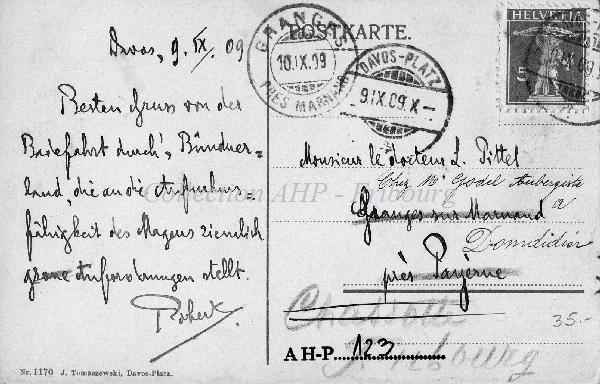 POSTKARTE.
HELVETIA
5
GRANGES
10.IX.09
PRÈS MARNAND
DAVOS-PLATZ
9.IX.09.X-
Davos, 9. IX. 09
Besten Gruss von der
Badefahrt durch's Bündner-
land, die an die Aufnahms-
fähigkeit des Magens ziemlich
grosse Anforderungen stellt.
Robert
Monsieur le docteur L. Pittel
Chez Mr Godel Aubergiste
Granges sur Marnand
à
Domdidier
près Payerne
Fribourg
35.-
Collection AHP - Fribourg
AH-P. 123
Nr. 1170 J. Tomaszewski, Davos-Platz.